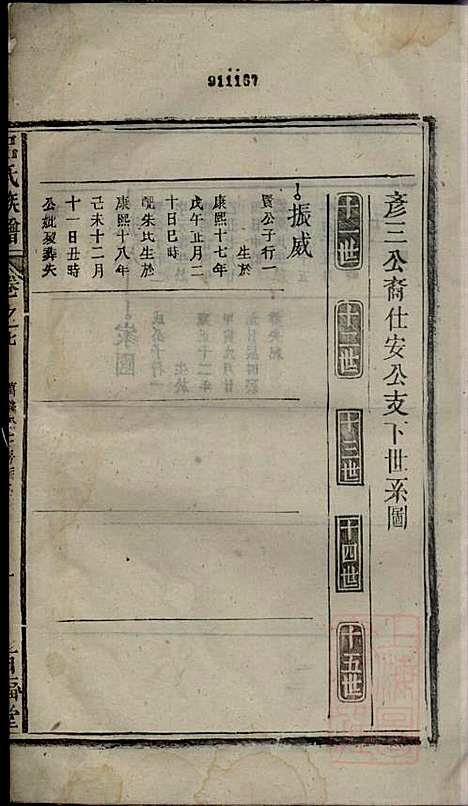 911167
彥三公裔仕安公支下世系圖
十一世
十二世
十三世
十四世
十五世
振威
賢公子行一
生於
康熙十七年
戊午正月二
十日巳時
娶朱氏生於
康熙十八年
己未十二月
十一日丑時
公妣歿葬失
氏族譜
卷之